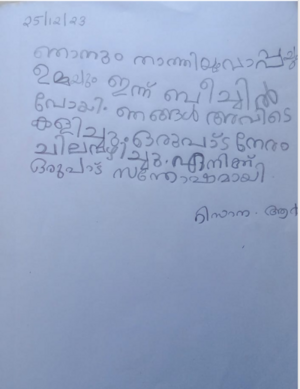 25/12/23
ഞാനും താത്തിയുവാപ്പച്ചി
ഉമ്മച്ചും ഇന്ന് ബീച്ചിൽ
പോയി. ഞങ്ങൾ അവിടെ
കളിച്ചു. ഒരുപാട് നേരം
ചിലവഴിച്ചു. എനിക്ക്
ഒരുപാട് സന്തോഷമായി.
റിസാന. ആർ